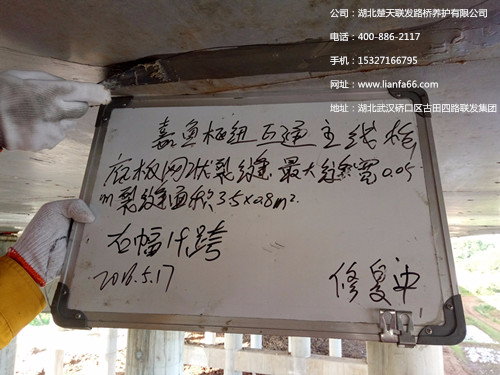 公司：湖北楚天联发路桥养护有限公司
电话：400-886-2117
手机：15327166795
网址：www.lianfa66.com
地址：湖北武汉硚口区古田四路联发集团
嘉鱼枢纽互通主线桥
底板网状裂缝 最大缝宽0.05
m裂缝面积3.5×0.8m².
右幅14跨
2016.5.17
修复中